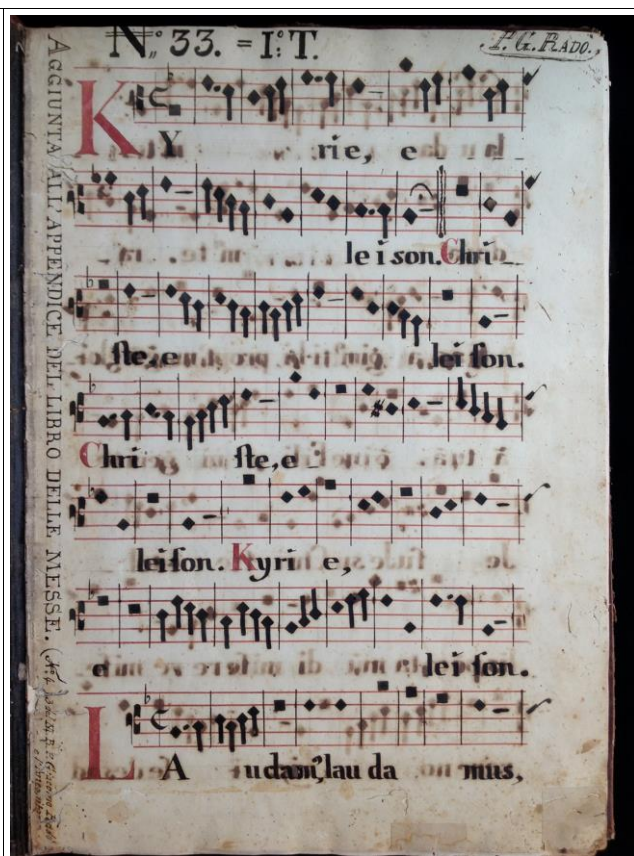 N.º 33. = I.º T.
P. G. RADO.
AGGIUNTA ALL APPENDICE DEL LIBRO DELLE MESSE.
KY rie, e
leison. Chri
ste, e leison.
Chri ste, e
leison. Kyri e,
e leison.
LA udam', lau da mus,